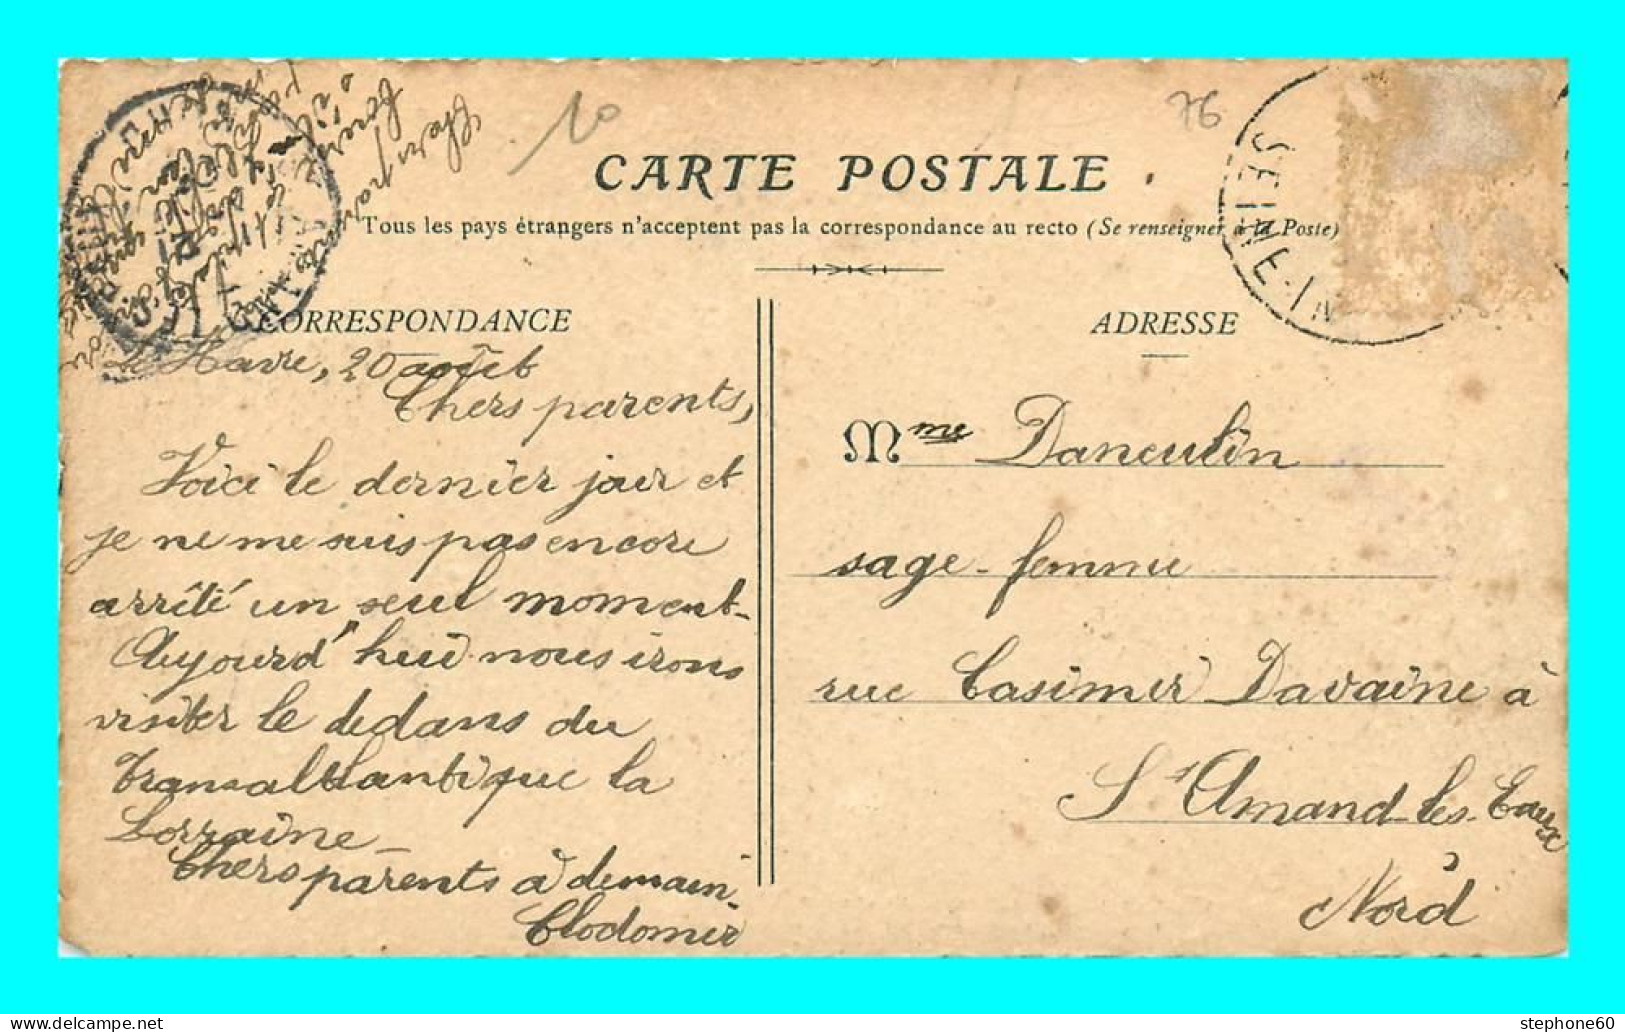 10
76
CARTE POSTALE
Tous les pays étrangers n'acceptent pas la correspondance au recto (Se renseigner à la Poste)
SEINE-IN
CORRESPONDANCE
Le Havre, 20 août
Chers parents,
Voici le dernier jour et
je ne me suis pas encore
arrêté un seul moment.
Aujourd'hui nous irons
visiter le dedans du
Transatlantique la
Lorraine
Chers parents à demain.
Clodomir
ADRESSE
Mme Daneulin
sage-femme
rue Casimir Davaine à
St Amand-les-Eaux
Nord
stephone60